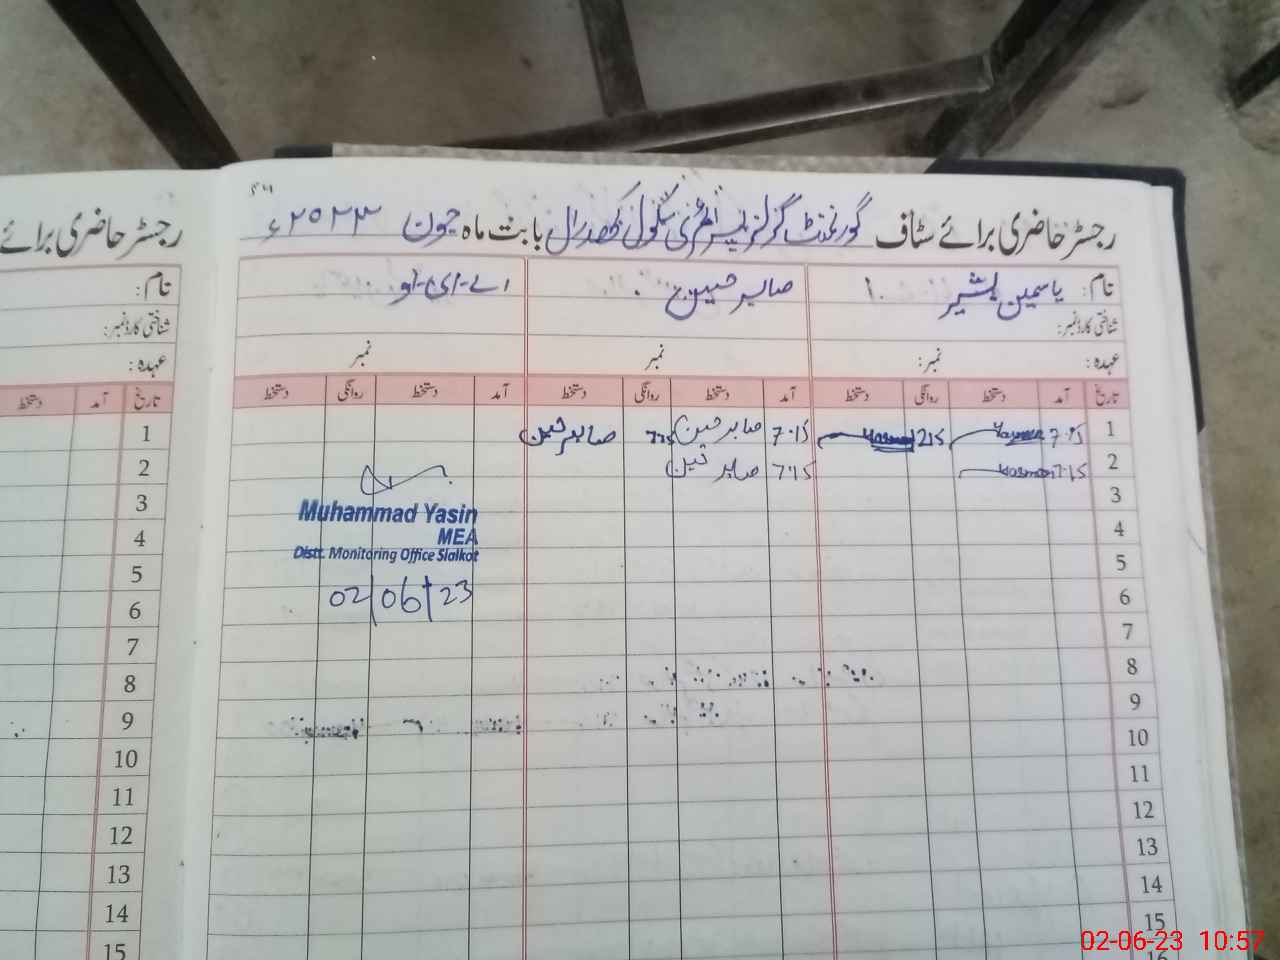 رجسٹر حاضری برائے سٹاف گورنمنٹ گرلز پرائمری سکول کھدرال بابت ماہ جون ۲۰۲۳ء
نام: یاسمین بشیر ۱۰ صابر حسین اے-ای-او
شناختی کارڈ نمبر:
عہدہ: نمبر: نمبر نمبر
تاریخ آمد دستخط روانگی دستخط آمد دستخط روانگی دستخط آمد دستخط روانگی دستخط
1 7.15 Yasmeen 1215 Yasmeen 7.15 صابر حسین صابر حسین
2 7.15 Yasmeen 7.15 صابر حسین
3
4
5
6
7
8
9
10
11
12
13
14
15
16
Muhammad Yasin
MEA
Distt. Monitoring Office Sialkot
02/06/23
رجسٹر حاضری برائے
نام:
شناختی کارڈ نمبر:
عہدہ:
تاریخ آمد دستخط
1
2
3
4
5
6
7
8
9
10
11
12
13
14
15
02-06-23 10:57